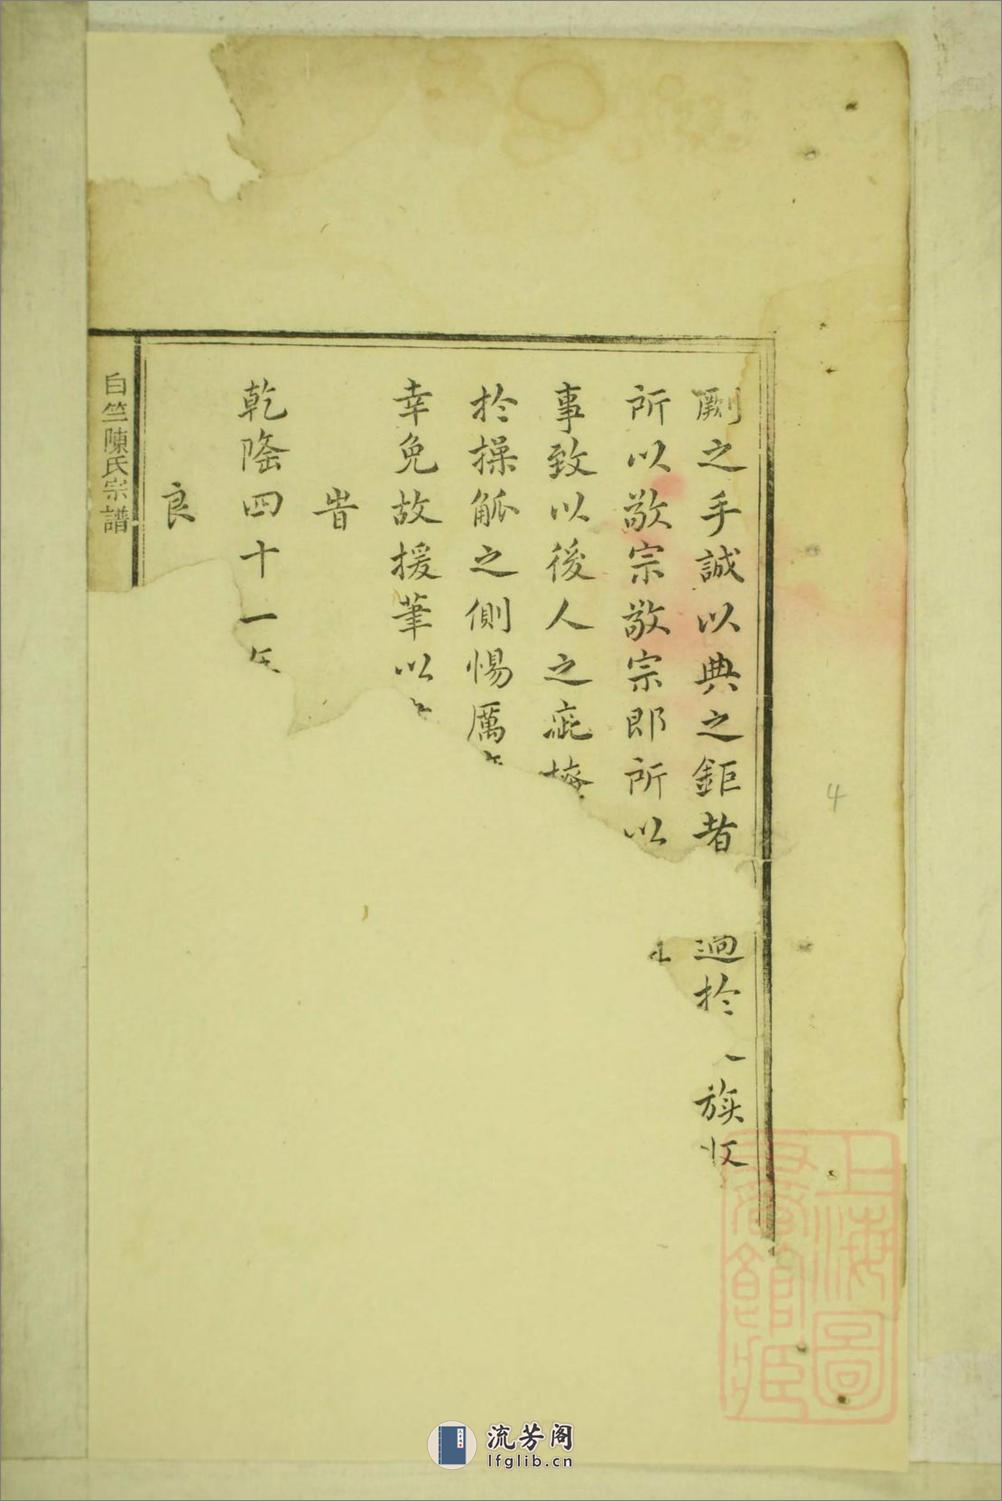 劂之手誠以典之鉅者
迥於
族收
所以敬宗敬宗即所以
事致以後人之疵
於操觚之側惕厲
幸免故援筆以
旹
乾隆四十一年
良
白竺陳氏宗譜
4
上海圖
書館藏
流芳阁
lfglib.cn